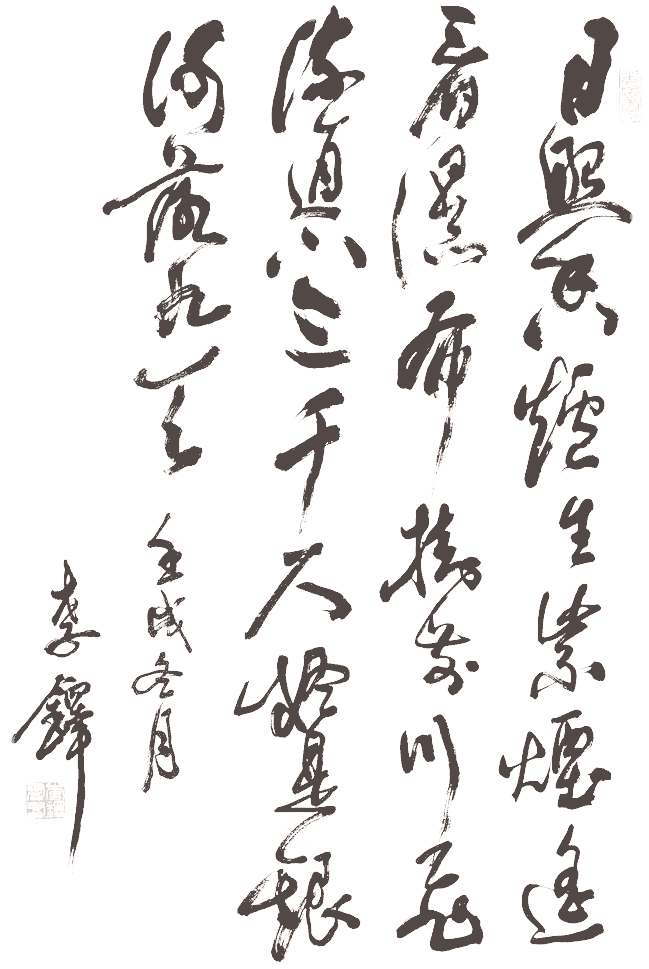 日照香爐生紫煙遙
看瀑布掛前川飛
流直下三千尺疑是銀
河落九天
壬戌冬月
李鐸